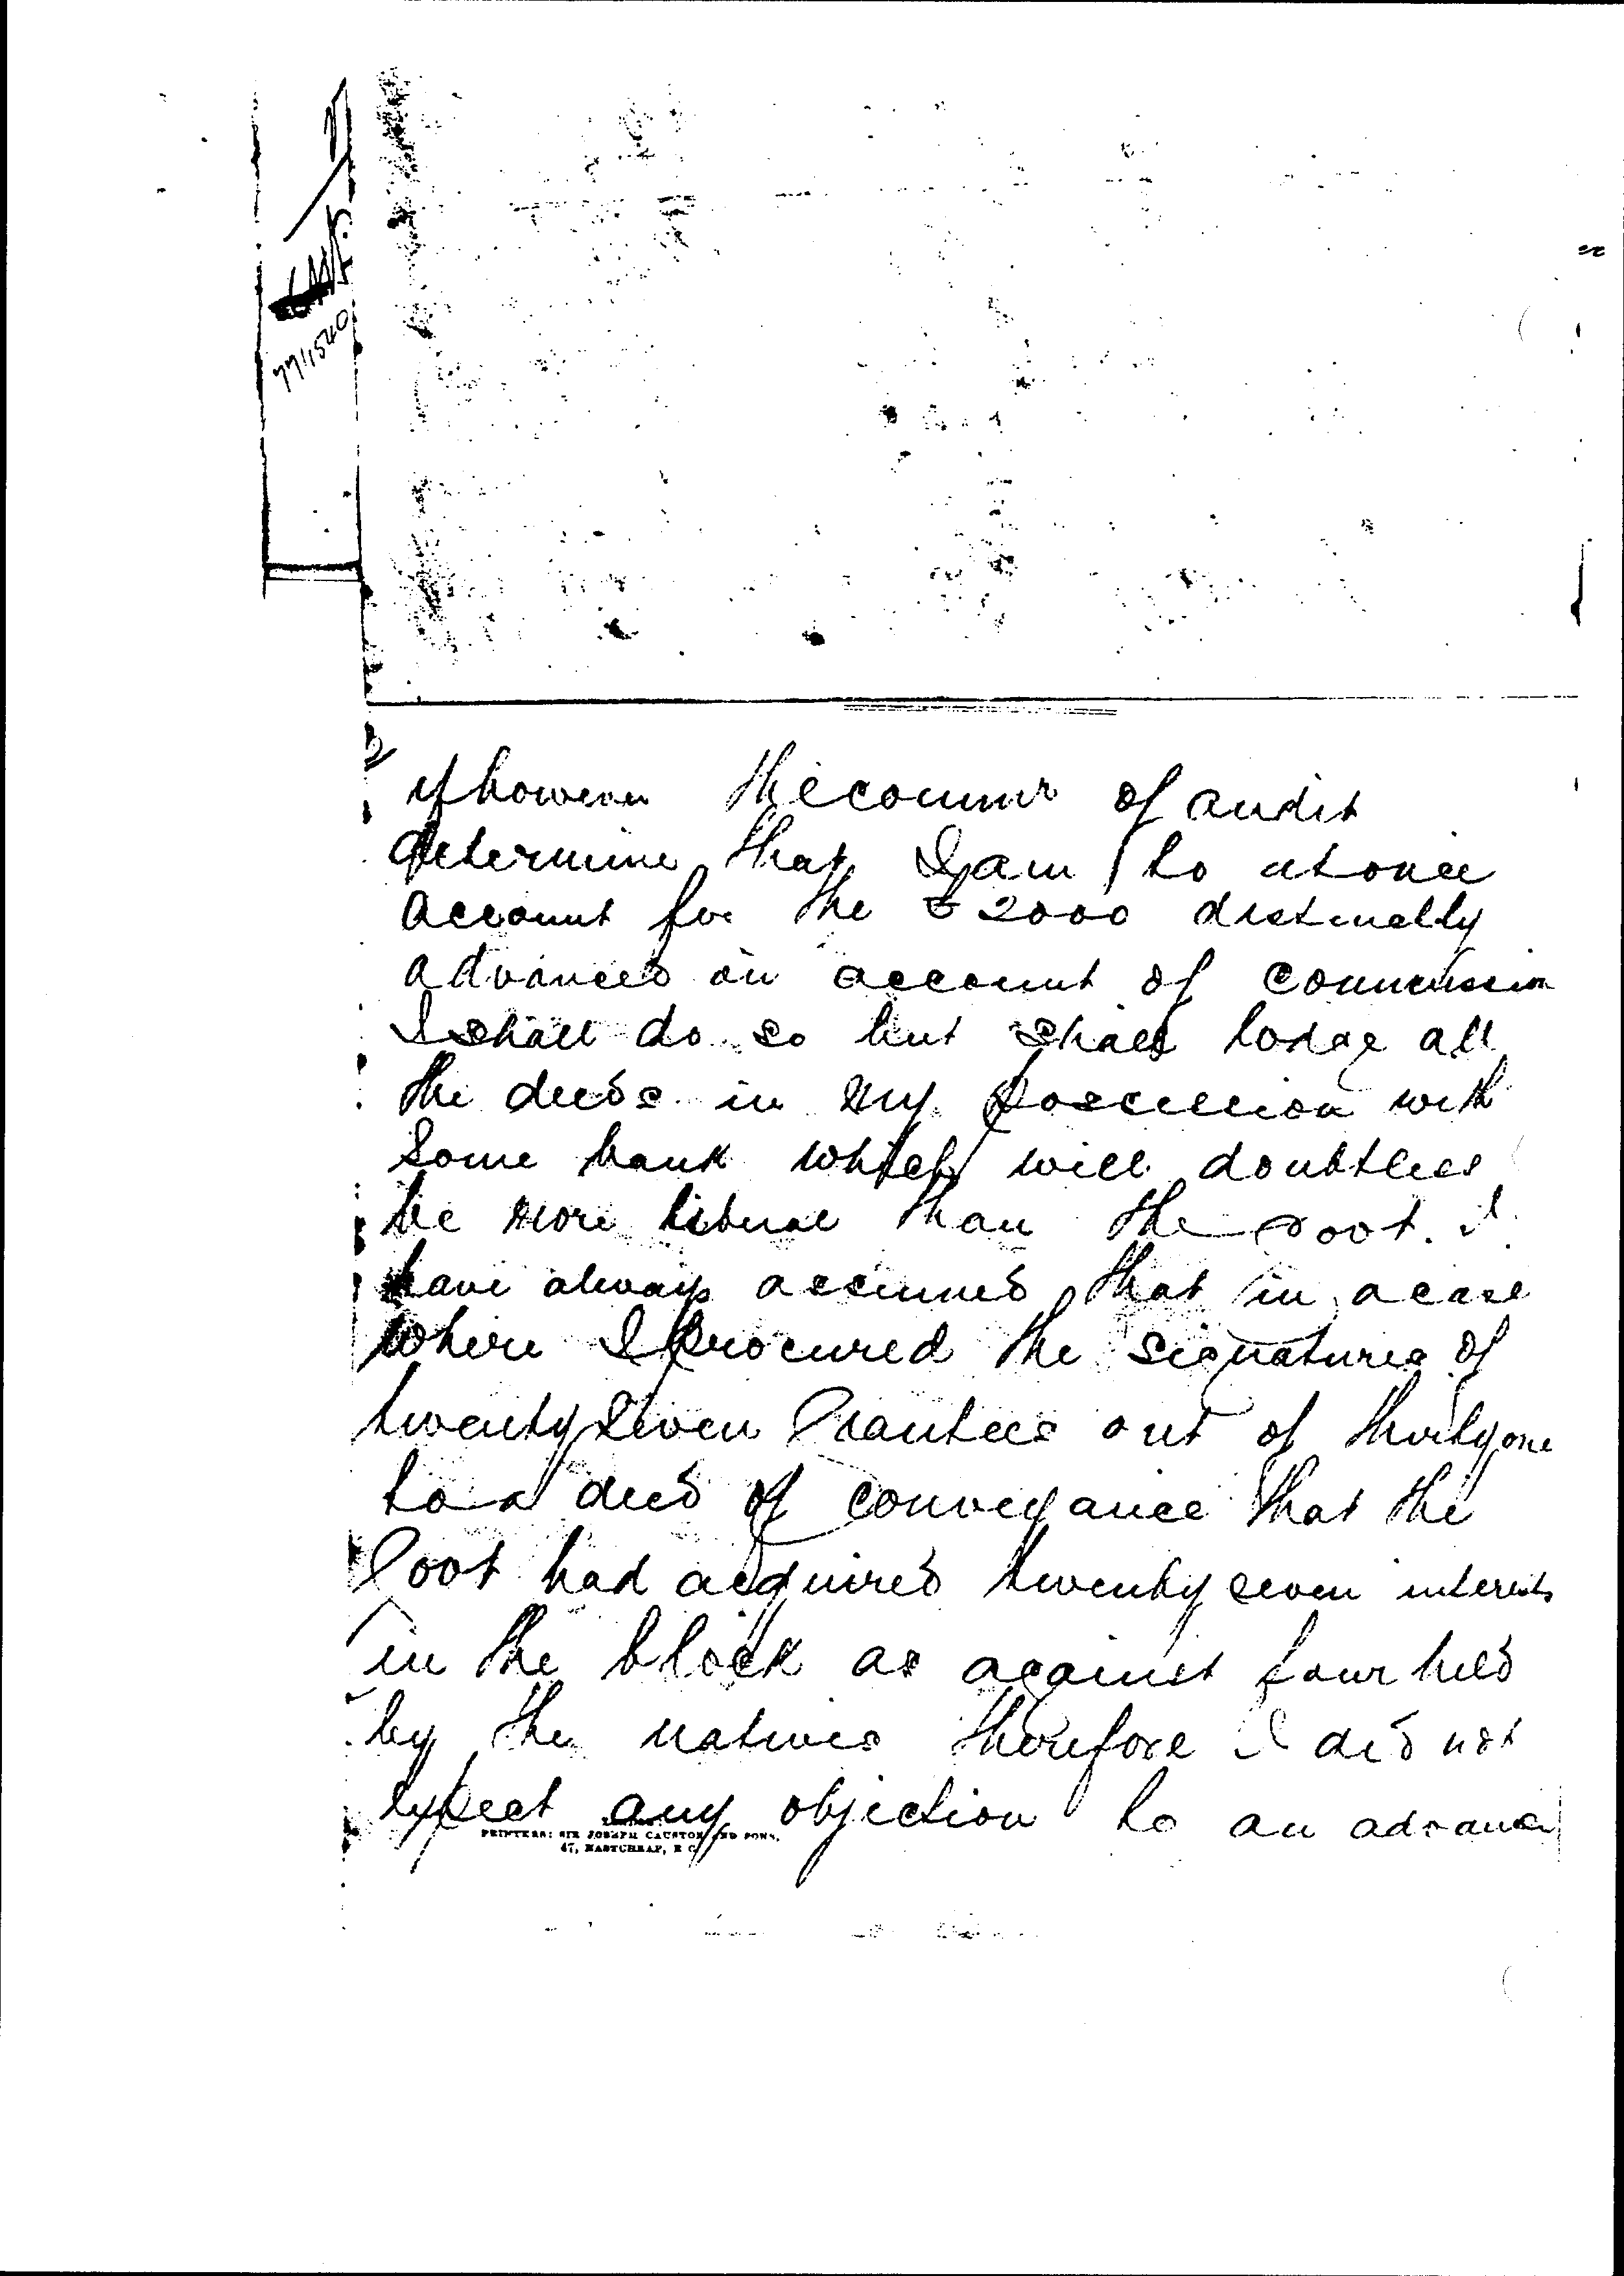 77/1540
2
if however the commr of audit
determine that I am to at once
account for the £2000 distinctly
advanced on account of commission
I shall do so but shall lodge all
the deeds in my possession with
some bank which will doubtless
be more liberal than the Govt. I
have always assumed that in a case
where I procured the signatures of
twenty seven Grantees out of thirty one
to a deed of conveyance that the
Govt had acquired twenty seven interests
in the block as against four held
by the natives therefore I did not
expect any objection to an advance
PRINTERS: SIR JOSEPH CAUSTON AND SONS,
47, EASTCHEAP, E C